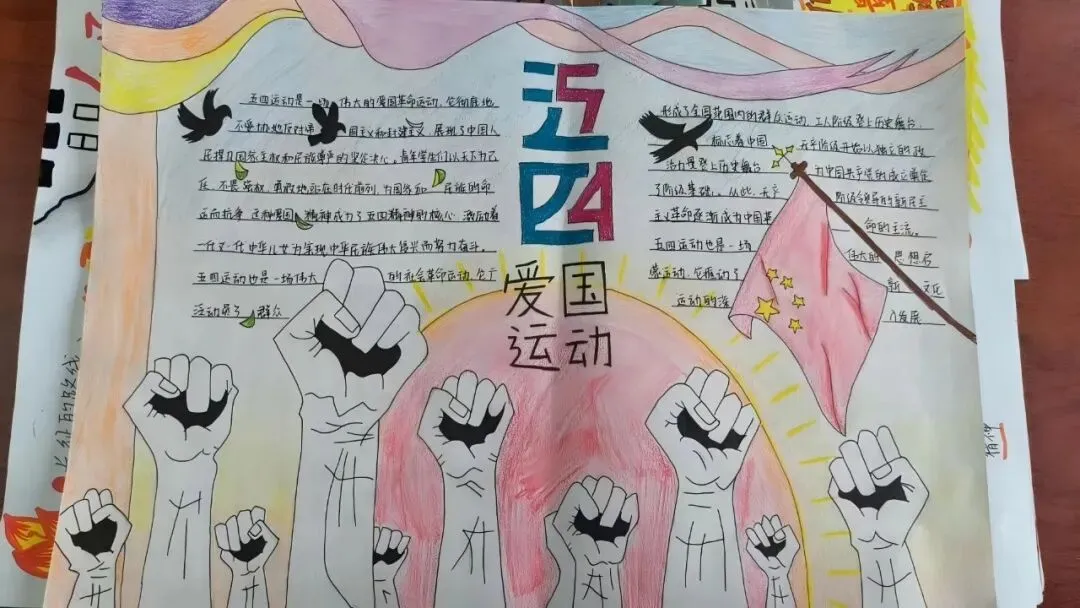 五四
爱国
运动
五四运动是一场伟大的爱国革命运动,它彻底地
不妥协地反对帝国主义和封建主义,展现了中国人
民捍卫国家主权和民族尊严的坚定决心,青年学生们以天下为己
任,不畏强权,勇敢地站在时代前列,为国家和民族的命
运而抗争,这种爱国精神成为了五四精神的核心,激励着
一代又一代中华儿女为实现中华民族伟大复兴而努力奋斗。
五四运动也是一场伟大的社会革命运动,它广
泛动员了群众
形成了全国范围内的群众运动,工人阶级登上历史舞台,
标志着中国无产阶级开始以独立的政
治力量登上历史舞台为中国共产党的成立奠定
了阶级基础。从此,无产阶级领导的新民主
主义革命逐渐成为中国革命的主流。
五四运动也是一场伟大的思想启
蒙运动,它推动了新文化
运动的深入发展
长征的路线
精神